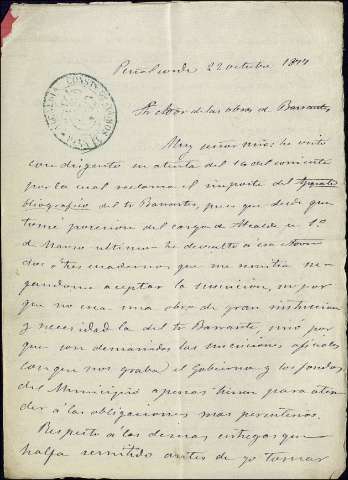 Peñalsordo 22 octubre 1877
Sr Edor de las obras de Barrantes
Muy señor mio: he visto
con dirigente su atenta del 14 del corriente
por la cual reclama el importe del Aparato
bibliografico del Sr Barrantes, pues que desde que
tomé posesion del cargo de Alcalde en 1º
de Marzo ultimo he devuelto a esa
dos o tres cuadernos que me remitia ne-
gandome aceptar la suscricion, no por
que no sea una obra de gran instruccion
y necesidad la del Sr Barrante, sino por
que son demasiadas las suscriciones oficiales
con que nos graba el Gobierno y los fondos
del Municipio apenas tienen para aten-
der a las obligaciones mas perentorias.
Respecto a las demas entregas que
halla remitidos antes de yo tomar